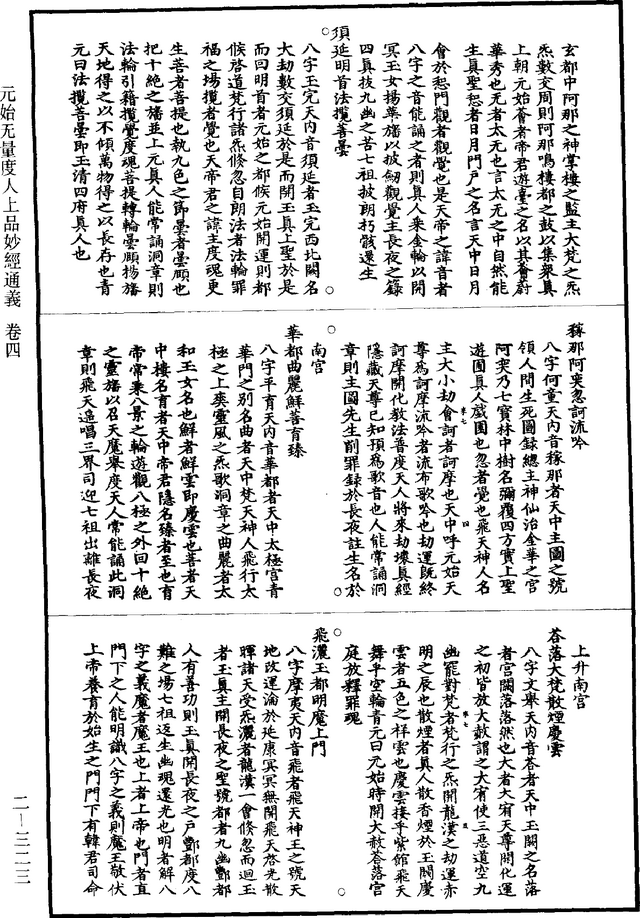 玄都中阿那之神掌樓之監主大梵之炁
炁數交周則阿那鳴樓都之鼓以集衆真
上朝元始薈者帝君遊臺之名以其薈蔚
華秀也元者太元也言太元之中自然能
生真聖恝者日月門戶之名言天中日月
會於恝門觀者觀覺也是天帝之諱音者
八字之音能誦之者則真人乘金輪以開
冥玉女揚華旛以披劒觀覺主長夜之錄
四真技九幽之苦七祖披朗朽骸還生
須延明首法攬菩曇
八字玉完天內音須延者玉完西北闕名
大劫數交須延於是而開玉真上聖於是
而回明首者元始之都候元始開運則都
候啓道梵行諸炁倏忽自朗法者法輪罪
福之場攬者覺也天帝君之諱主度魂更
生菩者菩提也執九色之節曇者曇頤也
把十絶之旛並上元真人能常誦洞章則
法輪引籍攬覺度魂菩提轉輪曇頤揚旛
天地得之以不傾萬物得之以長存也青
元曰法攬菩曇即玉清四府真人也
稼那阿奕忽訶流吟
八字何童天內音稼那者天中主圖之號
領人間生死圖録總主神仙治金華之宮
阿奕乃七寶林中樹名彌覆四方實上聖
遊圍真人戲園也忽者覺也飛天神人名
主大小劫會訶者訶摩也天中呼元始天
尊為訶摩流吟者流布歌吟也劫運既終
訶摩開化教法普度天人將來劫壞真經
隱藏天尊已知預為歌音也人能常誦洞
章則主圖先生削罪録於長夜註生名於
南宮
華都曲麗鮮菩育臻
八字平育天內音華都者天中太極宮青
華門之別名曲者天中梵天神人飛行太
極之上奏靈風之炁歌洞章之曲麗者太
和玉女名也鮮者鮮雲即慶雲也菩者天
中樓名育者天中帝君隱名臻者至也育
帝常乘八景之輪遊觀八極之外回十絶
之靈旛以召天魔舉度天人常能誦此洞
章則飛天遥唱三界司迎七祖出離長夜
上升南宮
荅落大梵散煙慶雲
八字文舉天內音荅者天中玉闕之名落
者宮闕落落然也大者大宥天尊開化運
之初皆放大赦謂之大宥使三惡道空九
幽罷對梵者梵行之炁開龍漢之劫運赤
明之辰也散煙者真人散香煙於玉闕慶
雲者五色之祥雲也慶雲接乎紫館飛天
舞乎空輪青元曰元始時開大赦荅落宮
庭放釋罪魂
飛灑玉都明魔上門
八字摩夷天內音飛者飛天神王之號天
地改運淪於延康冥冥無開飛天啓光散
暉諸天受炁灑者龍漢一會倏忽而迴玉
者玉真主開長夜之聖號都者九幽酆都
人有善功則玉真開長夜之戶酆都度八
難之場七祖返生幽魂還光也明者解八
字之義魔者魔王也上者上帝也門者直
門下之人能明識八字之義則魔王敬伏
上帝養育於始生之門門下有韓君司命
元始无量度人上品妙經通義 卷四
二—三二三